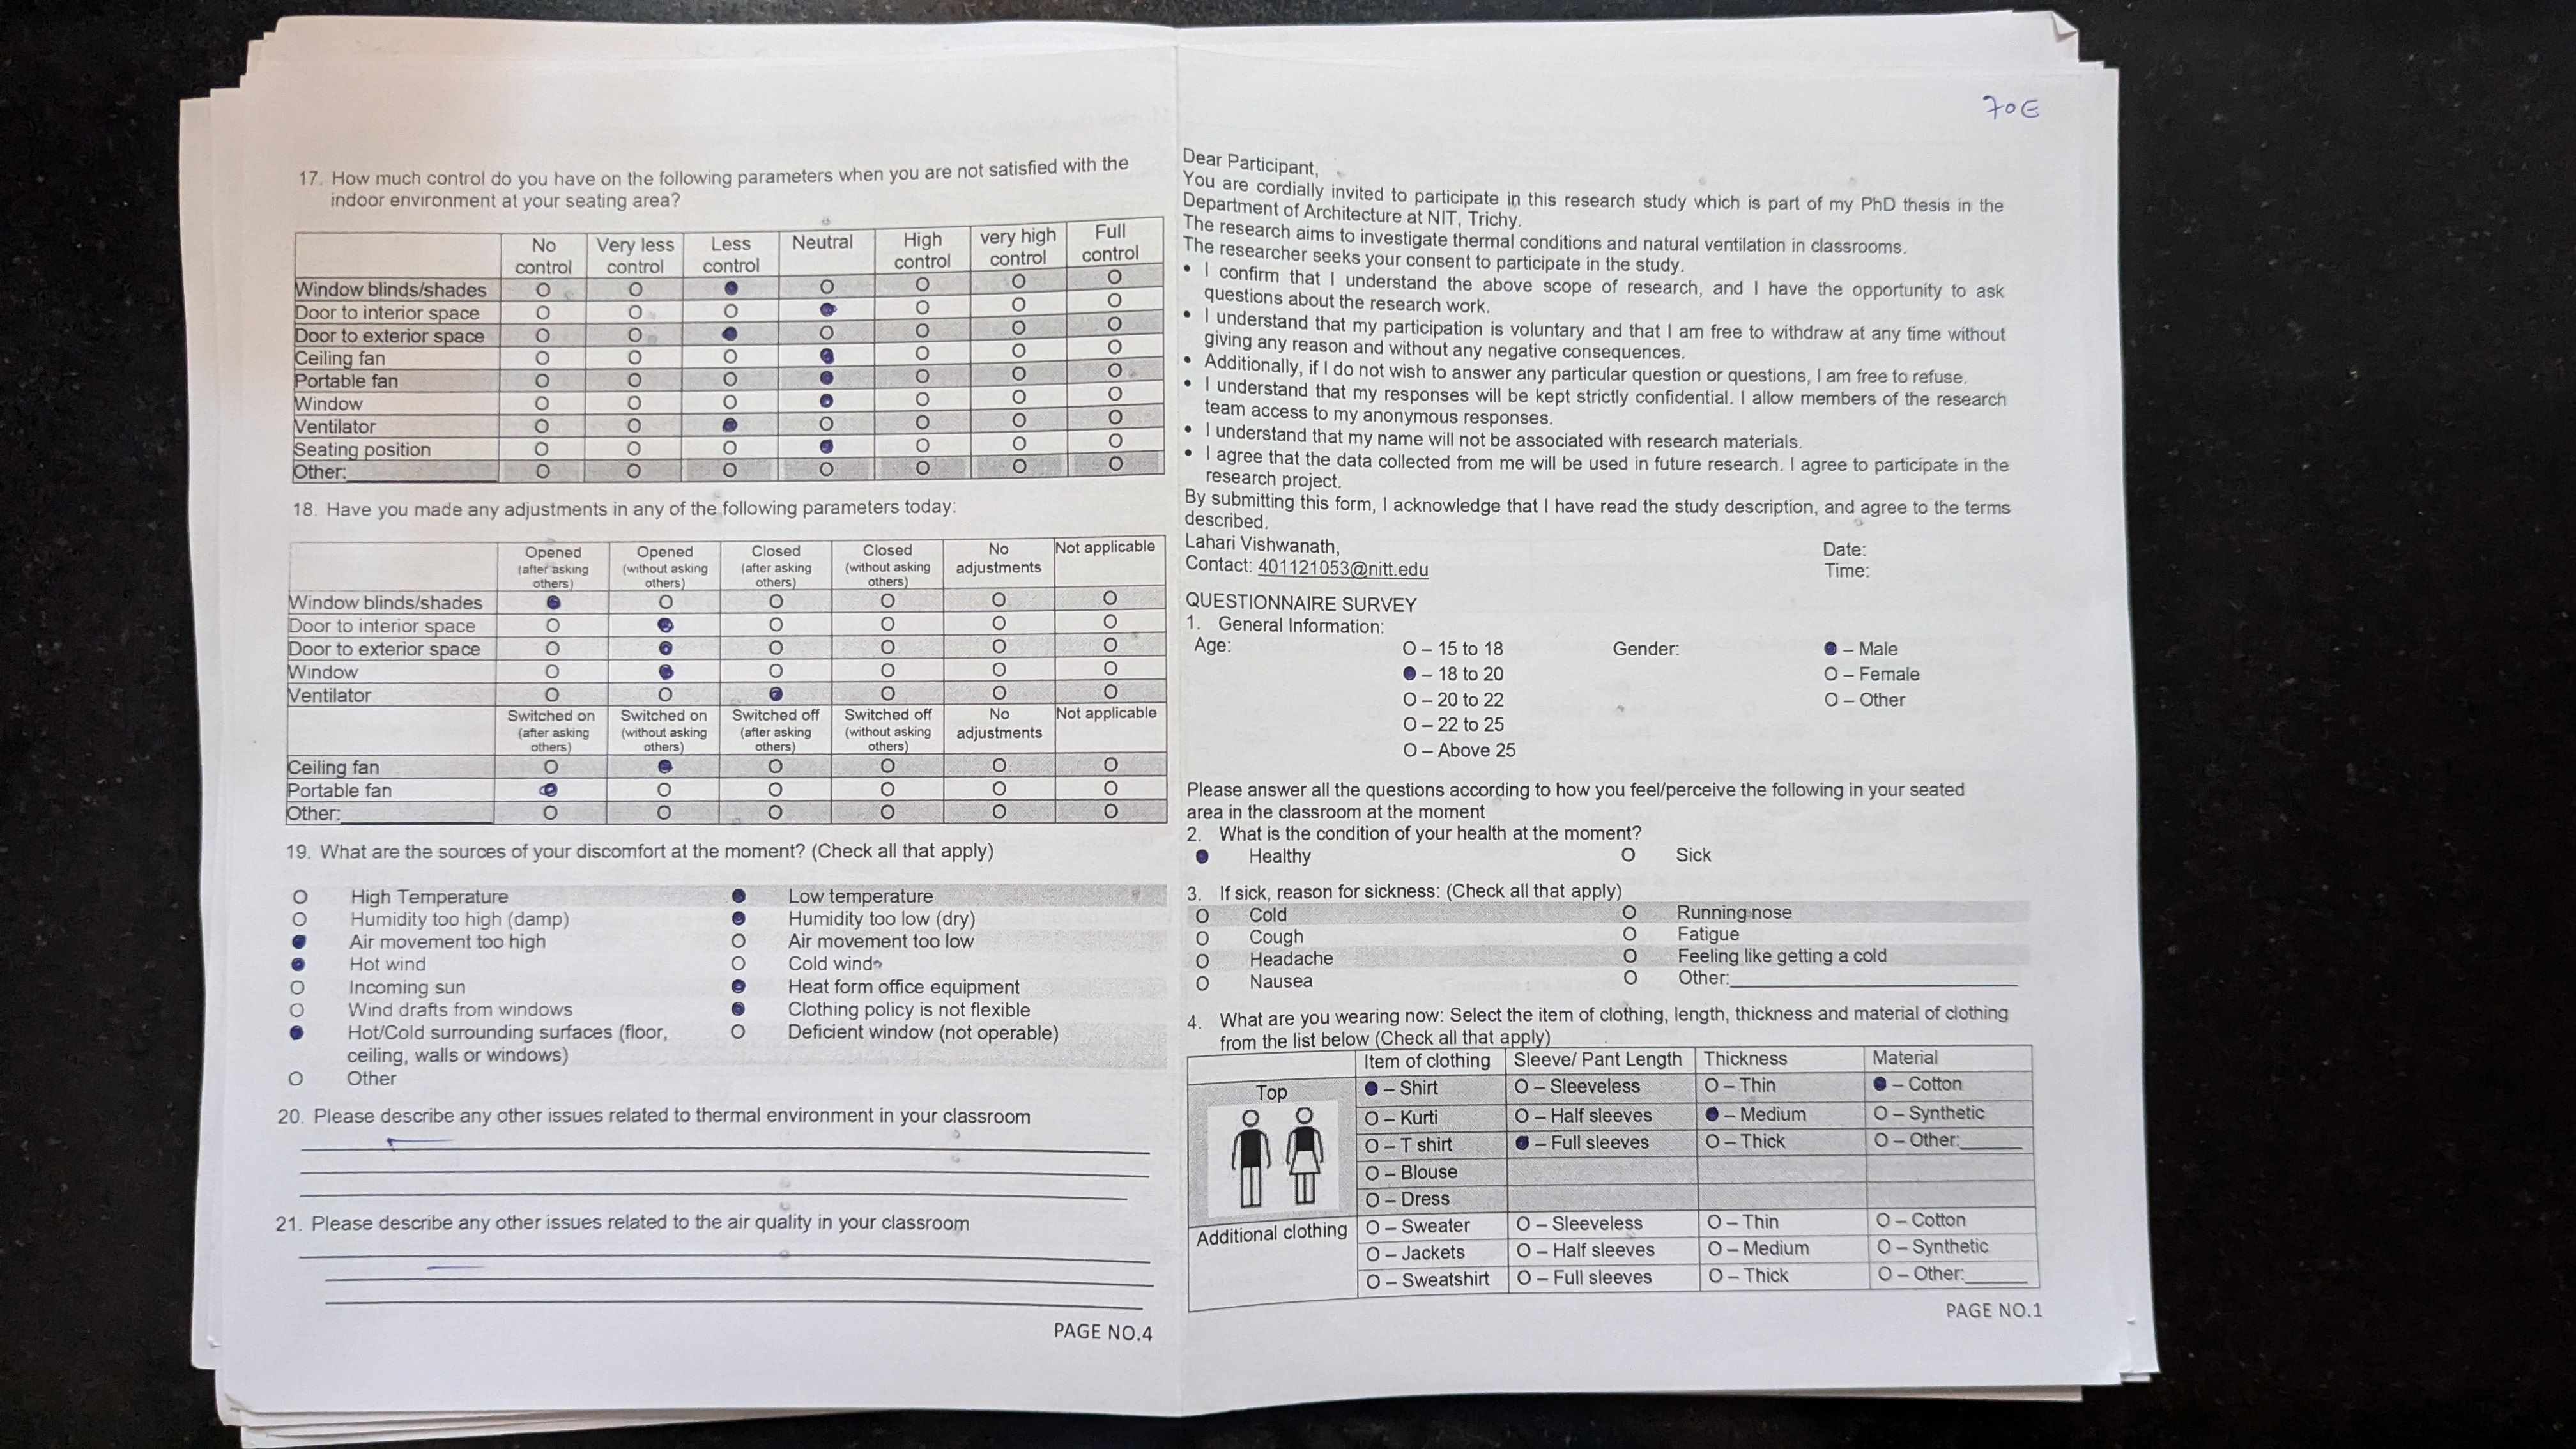 17. How much control do you have on the following parameters when you are not satisfied with the
indoor environment at your seating area?
No control Very less control Less control Neutral High control very high control Full control
Window blinds/shades O O ● O O O O
Door to interior space O O O ● O O O
Door to exterior space O O ● O O O O
Ceiling fan O O O ● O O O
Portable fan O O O ● O O O
Window O O O ● O O O
Ventilator O O ● O O O O
Seating position O O O ● O O O
Other:________ O O O O O O O
18. Have you made any adjustments in any of the following parameters today:
Opened (after asking others) Opened (without asking others) Closed (after asking others) Closed (without asking others) No adjustments Not applicable
Window blinds/shades ● O O O O O
Door to interior space O ● O O O O
Door to exterior space O ● O O O O
Window O ● O O O O
Ventilator O O ● O O O
Switched on (after asking others) Switched on (without asking others) Switched off (after asking others) Switched off (without asking others) No adjustments Not applicable
Ceiling fan O ● O O O O
Portable fan ● O O O O O
Other:________ O O O O O O
19. What are the sources of your discomfort at the moment? (Check all that apply)
O High Temperature ● Low temperature
O Humidity too high (damp) ● Humidity too low (dry)
● Air movement too high O Air movement too low
● Hot wind O Cold wind
O Incoming sun ● Heat form office equipment
O Wind drafts from windows ● Clothing policy is not flexible
● Hot/Cold surrounding surfaces (floor, O Deficient window (not operable)
ceiling, walls or windows)
O Other
20. Please describe any other issues related to thermal environment in your classroom
21. Please describe any other issues related to the air quality in your classroom
PAGE NO.4
70E
Dear Participant,
You are cordially invited to participate in this research study which is part of my PhD thesis in the
Department of Architecture at NIT, Trichy.
The research aims to investigate thermal conditions and natural ventilation in classrooms.
The researcher seeks your consent to participate in the study.
• I confirm that I understand the above scope of research, and I have the opportunity to ask
questions about the research work.
• I understand that my participation is voluntary and that I am free to withdraw at any time without
giving any reason and without any negative consequences.
• Additionally, if I do not wish to answer any particular question or questions, I am free to refuse.
• I understand that my responses will be kept strictly confidential. I allow members of the research
team access to my anonymous responses.
• I understand that my name will not be associated with research materials.
• I agree that the data collected from me will be used in future research. I agree to participate in the
research project.
By submitting this form, I acknowledge that I have read the study description, and agree to the terms
described.
Lahari Vishwanath, Date:
Contact: 401121053@nitt.edu Time:
QUESTIONNAIRE SURVEY
1. General Information:
Age: O – 15 to 18 Gender: ● – Male
● – 18 to 20 O – Female
O – 20 to 22 O – Other
O – 22 to 25
O – Above 25
Please answer all the questions according to how you feel/perceive the following in your seated
area in the classroom at the moment
2. What is the condition of your health at the moment?
● Healthy O Sick
3. If sick, reason for sickness: (Check all that apply)
O Cold O Running nose
O Cough O Fatigue
O Headache O Feeling like getting a cold
O Nausea O Other:________
4. What are you wearing now: Select the item of clothing, length, thickness and material of clothing
from the list below (Check all that apply)
Item of clothing Sleeve/ Pant Length Thickness Material
Top ● – Shirt O – Sleeveless O – Thin ● – Cotton
O – Kurti O – Half sleeves ● – Medium O – Synthetic
O – T shirt ● – Full sleeves O – Thick O – Other:______
O – Blouse
O – Dress
Additional clothing O – Sweater O – Sleeveless O – Thin O – Cotton
O – Jackets O – Half sleeves O – Medium O – Synthetic
O – Sweatshirt O – Full sleeves O – Thick O – Other:______
PAGE NO.1